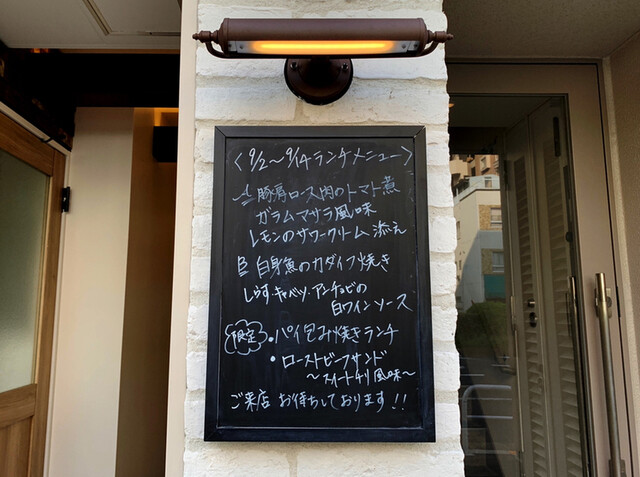 〈9/2〜9/14 ランチメニュー〉
A 豚肩ロース肉のトマト煮
ガラムマサラ風味
レモンのサワークリーム添え
B 白身魚のカダイフ焼き
しらす・キャベツ・アンチョビの
白ワインソース
限定 ・パイ包み焼きランチ
・ローストビーフサンド
〜スイートチリ風味〜
ご来店 お待ちしております!!